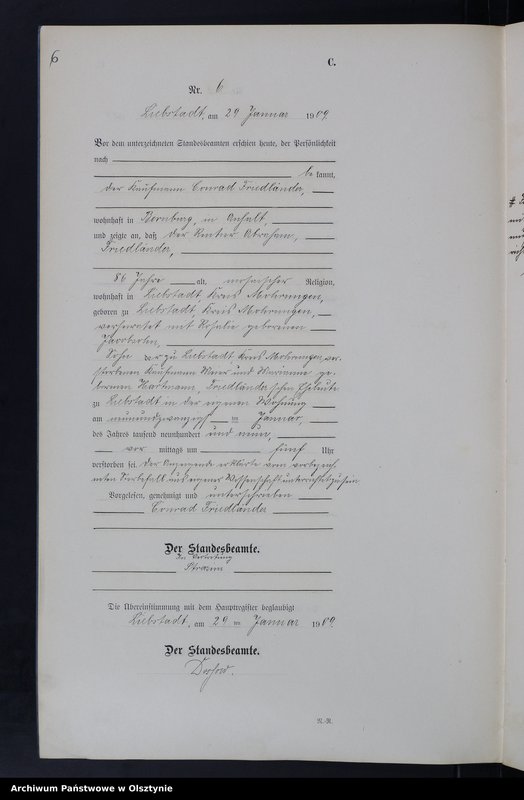 6
C.
Nr. 6
Liebstadt, am 29 Januar 1909
Vor dem unterzeichneten Standesbeamten erschien heute, der Persönlichkeit
nach
be kannt,
der Kaufmann Conrad Friedländer,
wohnhaft in Bernburg, in Anhalt,
und zeigte an, daß der Rentier Abraham,
Friedländer,
86 Jahre alt, mosaischer Religion,
wohnhaft in Liebstadt, Kreis Mohrungen,
geboren zu Liebstadt, Kreis Mohrungen,
verheiratet mit Rosalie geborenen
Sohn der zu Liebstadt, Kreis Mohrungen, ver-
storbenen Kaufmann Meier und Marianne ge-
borenen Hartmann, Friedländer'schen Eheleute
zu Liebstadt in der eigenen Wohnung
am neunundzwanzigsten Januar,
des Jahres tausend neunhundert und neun,
vor mittags um fünf Uhr
verstorben sei. Der Anzeigende erklärte vom vorbezeich-
neten Sterbefall aus eigener Wissenschaft unterrichtet zu sein
Vorgelesen, genehmigt und unterschrieben
Conrad Friedländer
Der Standesbeamte.
In Vertretung
Die Übereinstimmung mit dem Hauptregister beglaubigt
Liebstadt, am 29 ten Januar 1909
Der Standesbeamte.
Archiwum Państwowe w Olsztynie